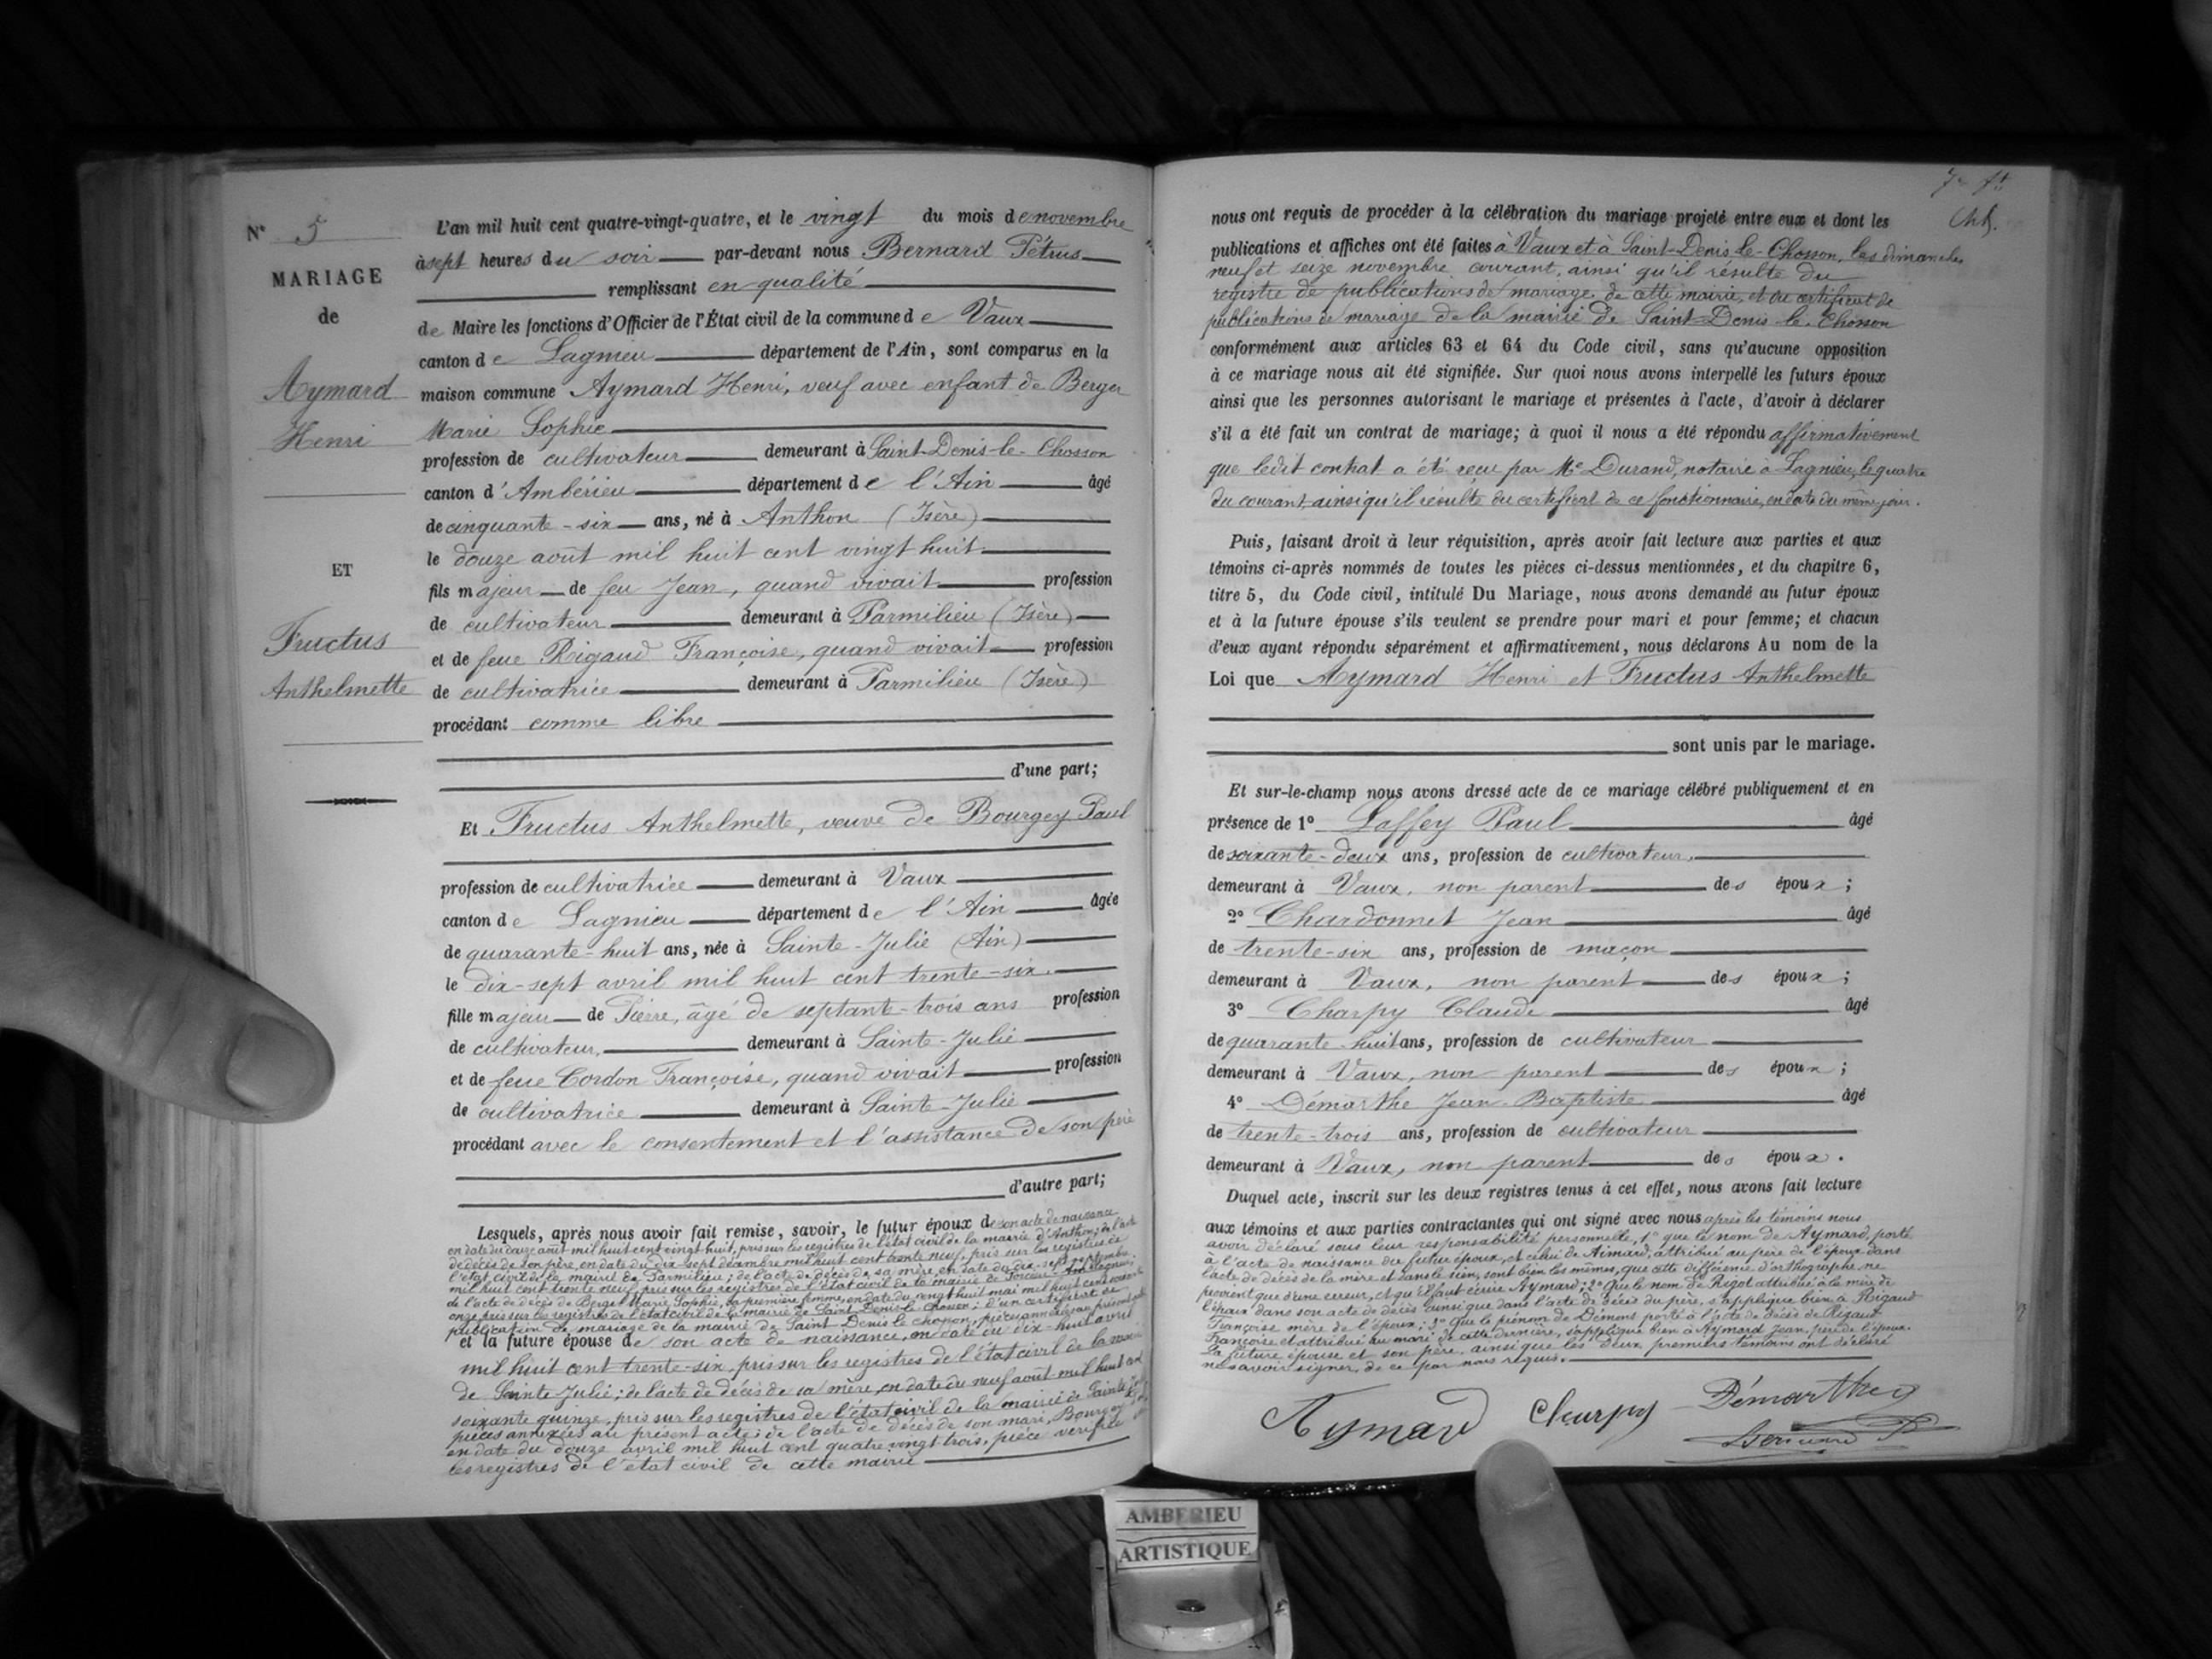 N° 5
MARIAGE
de
Aymard
Henri
ET
Fructus
Anthelmette
L'an mil huit cent quatre-vingt-quatre, et le vingt du mois de novembre
à sept heures du soir par-devant nous Bernard Pétrus
remplissant en qualité
de Maire les fonctions d'Officier de l'État civil de la commune de Vaux
canton de Lagnieu département de l'Ain, sont comparus en la
maison commune Aymard Henri, veuf avec enfant de Berger
Marie Sophie
profession de cultivateur demeurant à Saint-Denis-le-Chosson
canton d'Ambérieu département de l'Ain âgé
de cinquante-six ans, né à Anthon (Isère)
le douze août mil huit cent vingt huit
fils majeur de feu Jean, quand vivait profession
de cultivateur demeurant à Parmilieu (Isère)
et de feue Rigaud Françoise, quand vivait profession
de cultivatrice demeurant à Parmilieu (Isère)
procédant comme libre
d'une part;
Et Fructus Anthelmette, veuve de Bourgey Paul
profession de cultivatrice demeurant à Vaux
canton de Lagnieu département de l'Ain âgée
de quarante-huit ans, née à Sainte-Julie (Ain)
le dix-sept avril mil huit cent trente-six.
fille majeure de Pierre, âgé de septante-trois ans profession
de cultivateur, demeurant à Sainte-Julie
et de feue Cordon Françoise, quand vivait profession
de cultivatrice demeurant à Sainte-Julie
procédant avec le consentement et l'assistance de son père
d'autre part;
Lesquels, après nous avoir fait remise, savoir, le futur époux de son acte de naissance
en date du douze août mil huit cent vingt huit, pris sur les registres de l'état civil de la mairie d'Anthon; de l'acte
de décès de son père, en date du dix-sept décembre mil huit cent trente neuf, pris sur les registres de
l'état civil de la mairie de Parmilieu; de l'acte de décès de sa mère, en date du dix-sept septembre
mil huit cent trente neuf, pris sur les registres de l'état civil de la mairie de
de l'acte de décès de Berger Marie Sophie, sa première femme, en date du vingt huit mai mil huit cent
onze, pris sur les registres de l'état civil de la mairie de Saint-Denis-le-Chosson; d'un certificat de
publication de mariage de la mairie de Saint Denis le chosson, pièces annexées au présent acte
et la future épouse de son acte de naissance, en date du dix-huit avril
mil huit cent trente-six, pris sur les registres de l'état civil de la mairie
de Sainte Julie; de l'acte de décès de sa mère, en date du neuf août mil huit cent
soixante quinze, pris sur les registres de l'état civil de la mairie de Sainte Julie
pièces annexées au présent acte; de l'acte de décès de son mari, Bourgey
en date du douze avril mil huit cent quatre vingt trois, pièce vérifiée
les registres de l'état civil de cette mairie
nous ont requis de procéder à la célébration du mariage projeté entre eux et dont les
publications et affiches ont été faites à Vaux et à Saint-Denis-le-Chosson, les dimanches
neuf et seize novembre courant, ainsi qu'il résulte du
registre de publications de mariage de cette mairie, et du certificat de
publications de mariage de la mairie de Saint-Denis-le-Chosson
conformément aux articles 63 et 64 du Code civil, sans qu'aucune opposition
à ce mariage nous ait été signifiée. Sur quoi nous avons interpellé les futurs époux
ainsi que les personnes autorisant le mariage et présentes à l'acte, d'avoir à déclarer
s'il a été fait un contrat de mariage; à quoi il nous a été répondu affirmativement
que ledit contrat a été reçu par Me Durand, notaire à Lagnieu, le quatre
du courant, ainsi qu'il résulte du certificat de ce fonctionnaire, en date du même jour.
Puis, faisant droit à leur réquisition, après avoir fait lecture aux parties et aux
témoins ci-après nommés de toutes les pièces ci-dessus mentionnées, et du chapitre 6,
titre 5, du Code civil, intitulé Du Mariage, nous avons demandé au futur époux
et à la future épouse s'ils veulent se prendre pour mari et pour femme; et chacun
d'eux ayant répondu séparément et affirmativement, nous déclarons Au nom de la
Loi que Aymard Henri et Fructus Anthelmette
sont unis par le mariage.
Et sur-le-champ nous avons dressé acte de ce mariage célébré publiquement et en
présence de 1° Laffey Paul âgé
de soixante-deux ans, profession de cultivateur,
demeurant à Vaux, non parent des époux;
2° Chardonnet Jean âgé
de trente-six ans, profession de maçon
demeurant à Vaux, non parent des époux;
3° Charpy Claude âgé
de quarante-huit ans, profession de cultivateur
demeurant à Vaux, non parent des époux;
4° Démarthe Jean-Baptiste âgé
de trente-trois ans, profession de cultivateur
demeurant à Vaux, non parent des époux.
Duquel acte, inscrit sur les deux registres tenus à cet effet, nous avons fait lecture
aux témoins et aux parties contractantes qui ont signé avec nous après les témoins nous
avoir déclaré sous leur responsabilité personnelle, 1° que le nom de Aymard, porté
à l'acte de naissance du futur époux, et celui de Aimard, attribué au père de l'époux dans
l'acte de décès de la mère et dans le sien, sont bien les mêmes, que cette différence d'orthographe ne
provient que d'une erreur, et qu'il faut écrire Aymard; 2° que le nom de Rigot attribué à la mère de
l'époux dans son acte de décès ainsi que dans l'acte de décès du père, s'applique bien à Rigaud
Françoise mère de l'époux; 3° que le prénom de Démons porté à l'acte de décès de Rigaud
Françoise et attribué au mari de cette dernière, s'applique bien à Aymard Jean, père de l'époux.
La future épouse et son père, ainsi que les deux premiers témoins ont déclaré
ne savoir signer, de ce par nous requis.
Aymard Charpy Démarthe
Bernard P
AMBERIEU
ARTISTIQUE